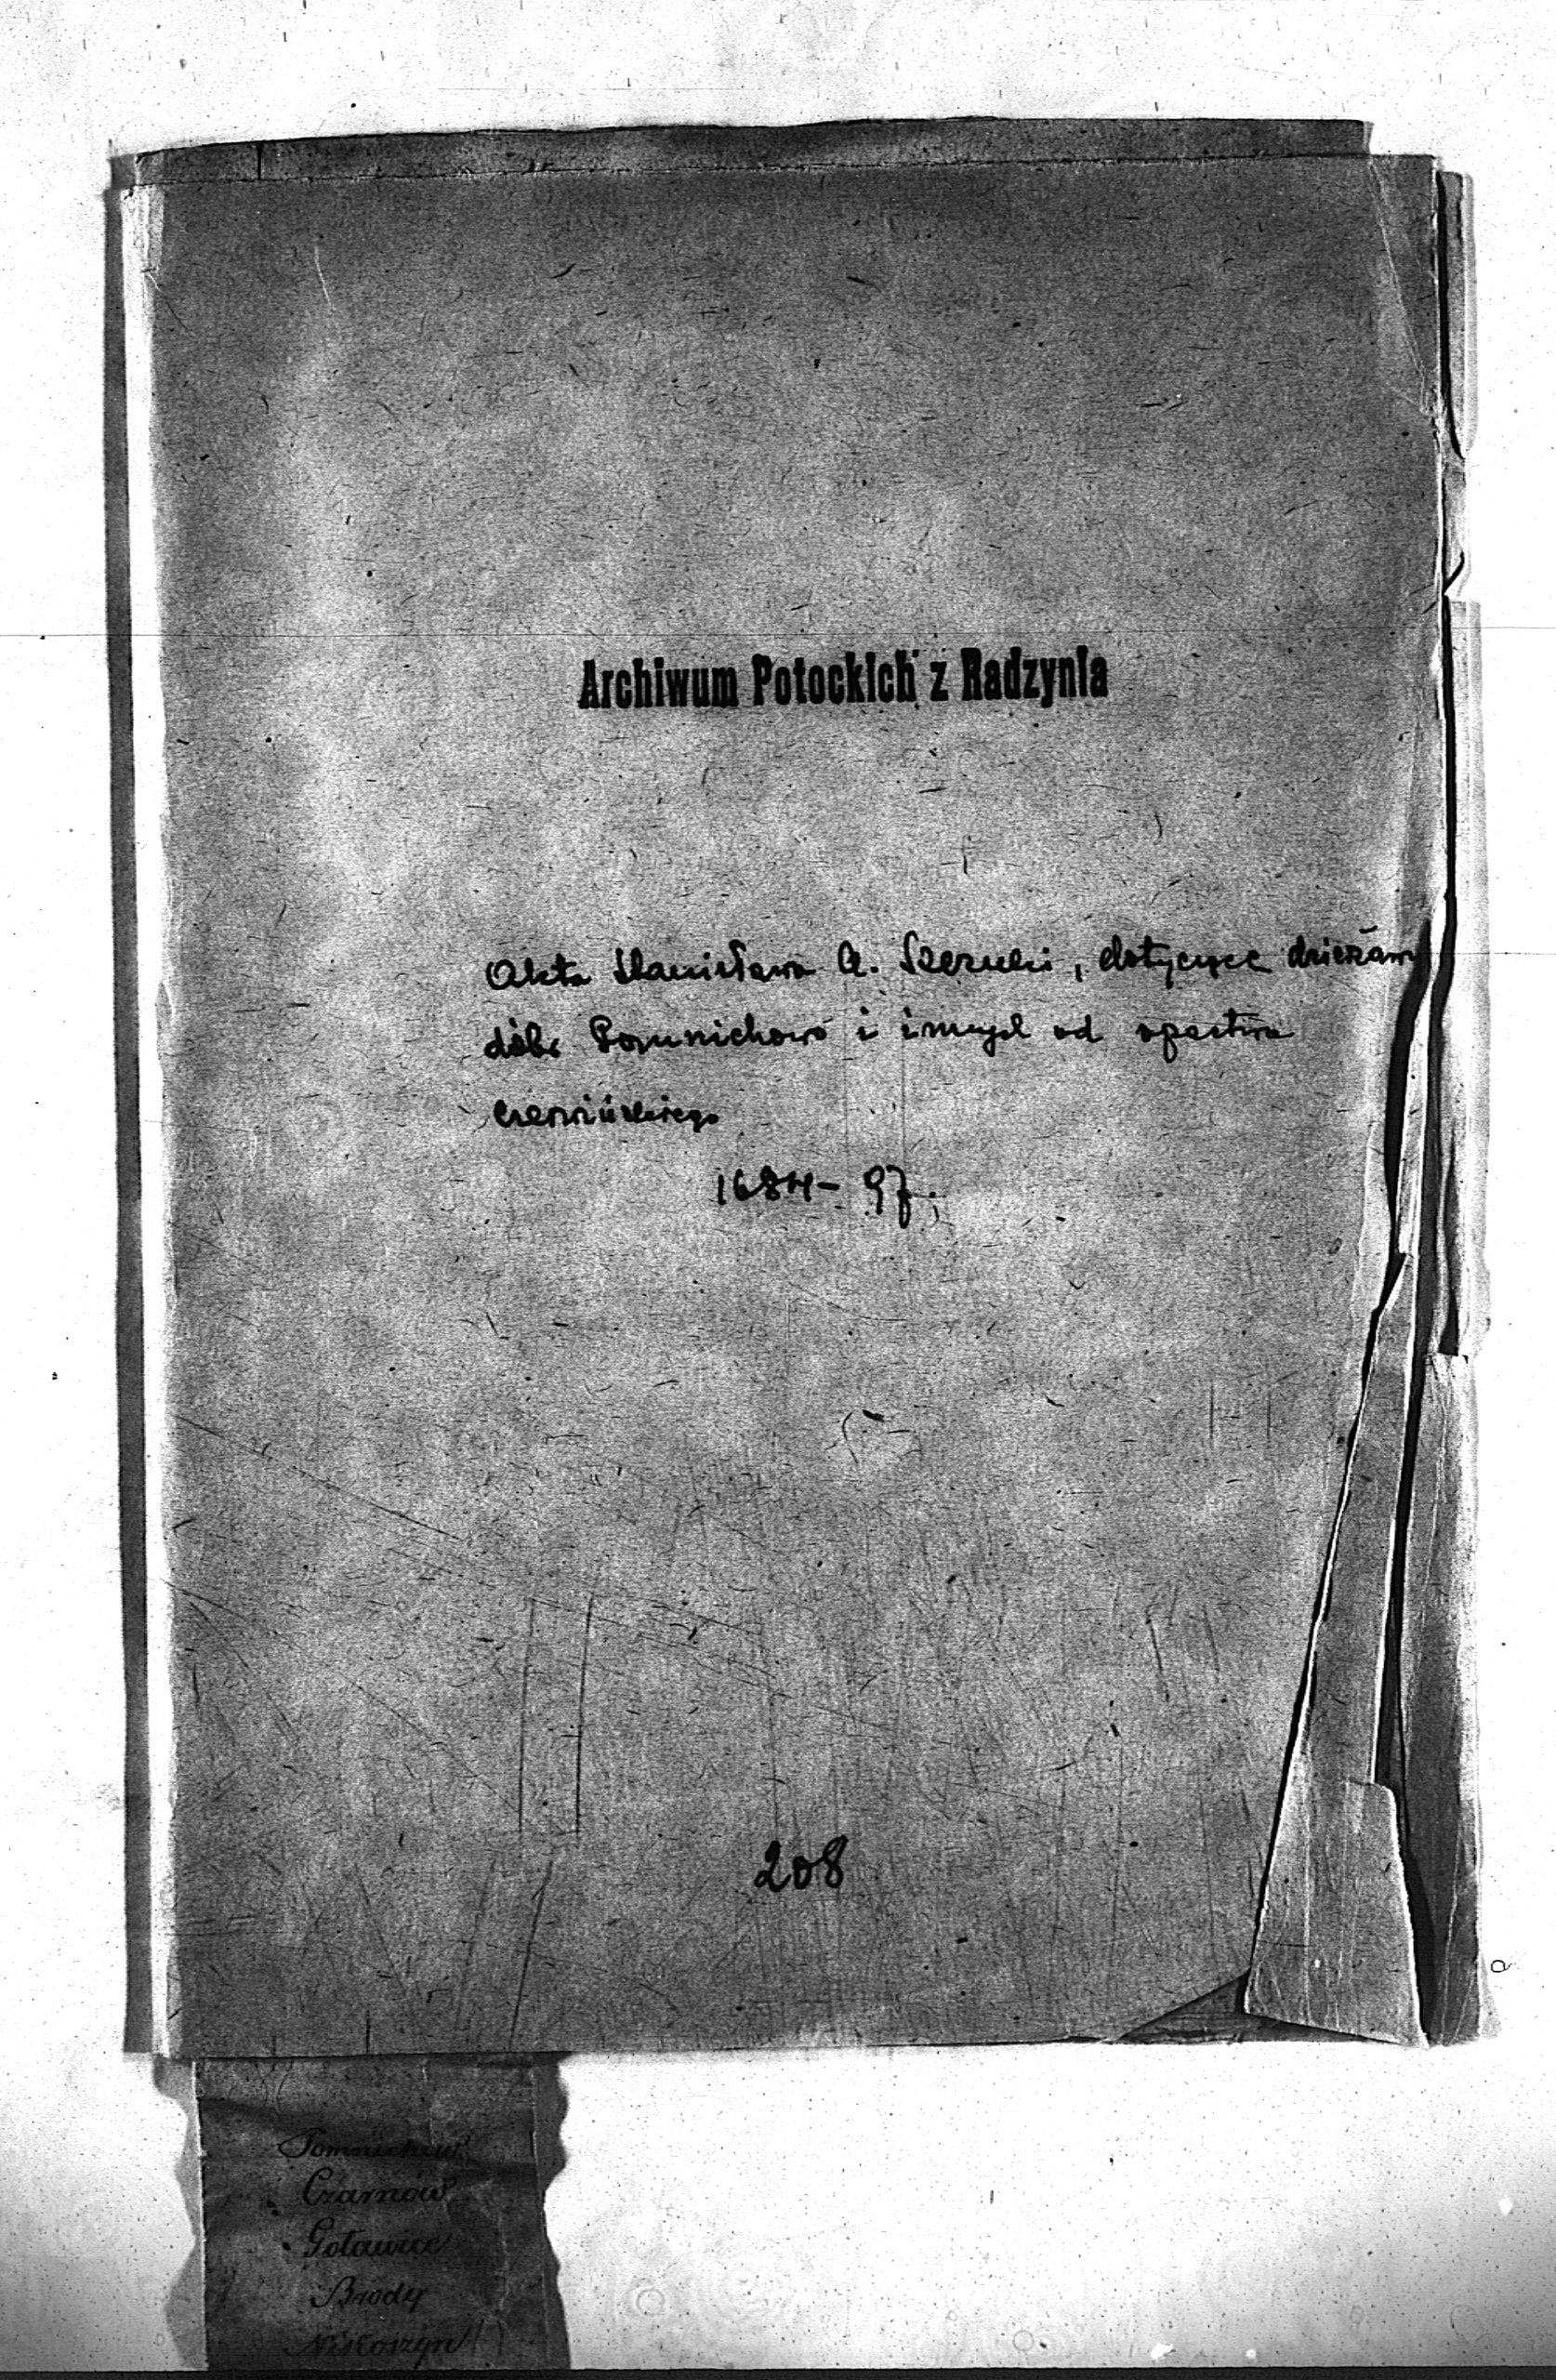 Archiwum Potockich z Radzynia
Akta Stanisława A. Szczuki, dotyczące dzierżaw
dóbr Pomnichowo i innych od opactwa
czerwińskiego
1684-97.
208
Pomnichow
Czarnow
Goławice
Brody